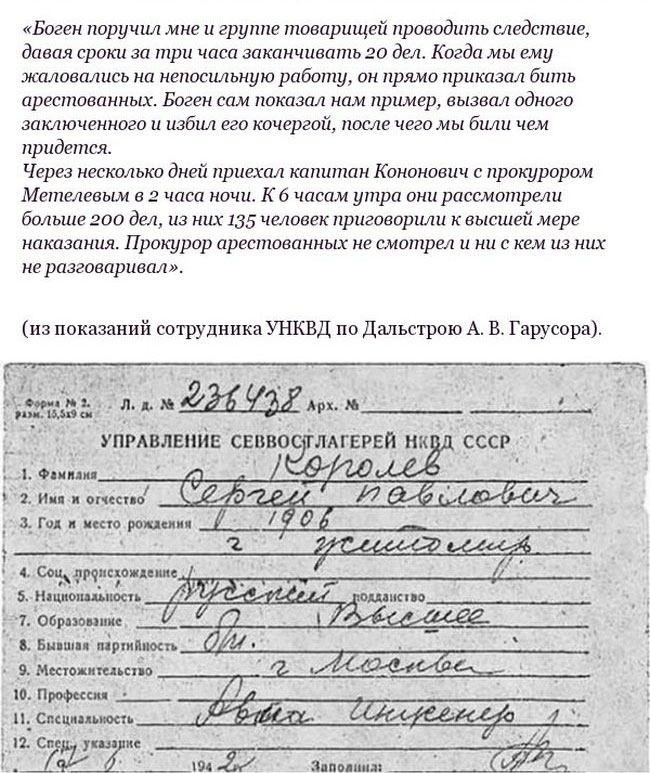 «Боген поручил мне и группе товарищей проводить следствие,
давая сроки за три часа заканчивать 20 дел. Когда мы ему
жаловались на непосильную работу, он прямо приказал бить
арестованных. Боген сам показал нам пример, вызвал одного
заключенного и избил его кочергой, после чего мы били чем
придется.
Через несколько дней приехал капитан Кононович с прокурором
Метелевым в 2 часа ночи. К 6 часам утра они рассмотрели
больше 200 дел, из них 135 человек приговорили к высшей мере
наказания. Прокурор арестованных не смотрел и ни с кем из них
не разговаривал».
(из показаний сотрудника УНКВД по Дальстрою А. В. Гарусора).
Форма № 2.
разм. 15,5х9 см
Л. д. № 236438 Арх. №
УПРАВЛЕНИЕ СЕВВОСТЛАГЕРЕЙ НКВД СССР
1. Фамилия Королев
2. Имя и отчество Сергей Павлович
3. Год и место рождения 1906
г Житомир
4. Соц. происхождение
5. Национальность русский подданство
7. Образование Высшее
8. Бывшая партийность бп.
9. Местожительство г Москва
10. Профессия
11. Специальность Авиа инженер
12. Спец. указание
194 Заполнил: